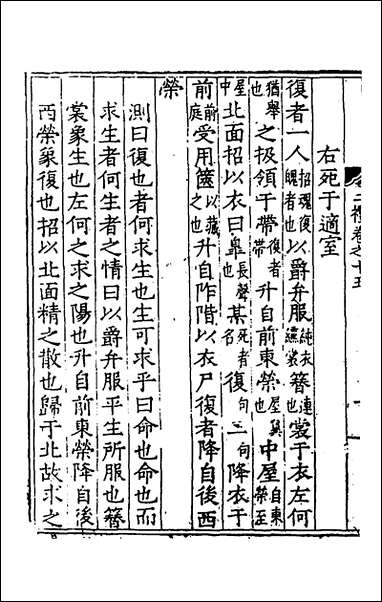 二禮卷之十五
右死于適室
復者一人招魂復魄者也以爵弁服純衣纁裳簪連也裳于衣左何
猶舉也之扱領于帶復者帶升自前東榮屋翼也中屋自東榮至
屋中北面招以衣曰皐長聲某死者名復句三句降衣于
前前庭受用篋以藏升自阼階以衣尸復者降自後西
榮
測曰復也者何求生也生可求乎曰命也命也而
求生者何生者之情曰以爵弁服平生所服也簪
裳象生也左何之求之陽也升自前東榮降自後
西榮象復也招以北面精之散也歸于北故求之